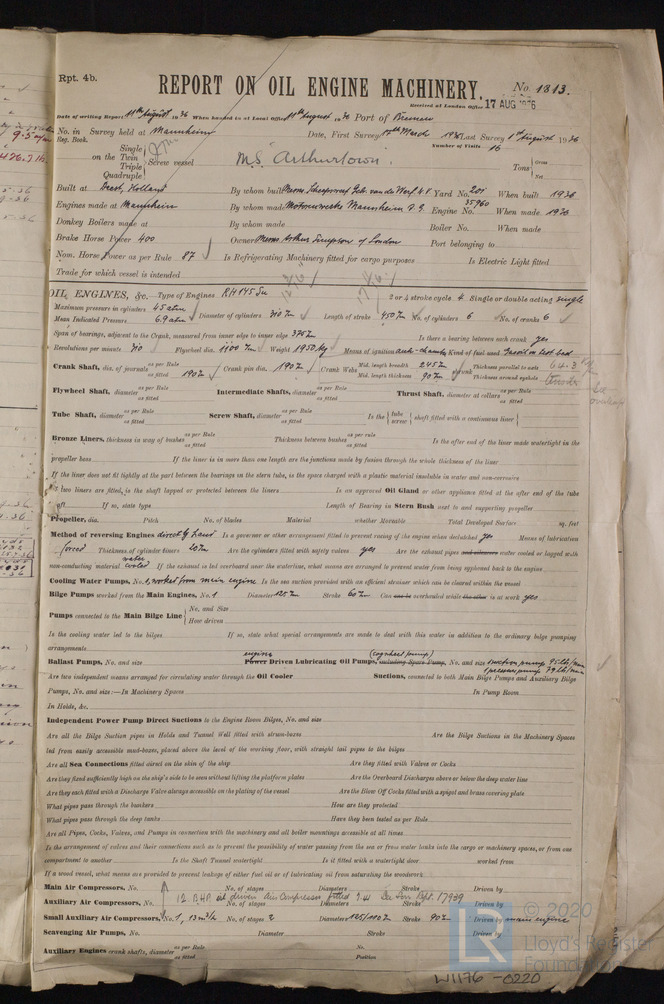 Rpt. 4b.
REPORT ON OIL ENGINE MACHINERY.
No 1813.
Received at London Office 17 AUG 1936
Date of writing Report 11th August 1936 When handed in at Local Office 11th August 1936 Port of Bremen
No. in Reg. Book. Survey held at Mannheim Date, First Survey 17th March 1936 Last Survey 1st August 1936
Number of Visits 16
on the Single Twin Triple Quadruple Screw vessel M.S. "Arthurtown". Tons Gross Net
Built at Deest, Holland By whom built Messrs Scheepswerf Geb. van de Werf N.V. Yard No. 201 When built 1936
Engines made at Mannheim By whom made Motorenwerke Mannheim A.G. Engine No. 35960 When made 1936
Donkey Boilers made at By whom made Boiler No. When made
Brake Horse Power 400 Owners Messrs Arthur Simpson of London Port belonging to
Nom. Horse Power as per Rule 87 Is Refrigerating Machinery fitted for cargo purposes Is Electric Light fitted
Trade for which vessel is intended
OIL ENGINES, &c. Type of Engines RH 145 Su 2 or 4 stroke cycle 4 Single or double acting single
Maximum pressure in cylinders 45 atm Diameter of cylinders 310 Length of stroke 450 No. of cylinders 6 No. of cranks 6
Mean Indicated Pressure 6.9 atm
Span of bearings, adjacent to the Crank, measured from inner edge to inner edge 375 Is there a bearing between each crank yes
Revolutions per minute 310 Flywheel dia. 1400 Weight 1950 kg Means of ignition Kind of fuel used
Crank Shaft, dia. of journals as per Rule as fitted 190 Crank pin dia. 190 Crank Webs Mid. length breadth 245 Mid. length thickness 90 Thickness parallel to axis Thickness around eyehole
Flywheel Shaft, diameter as per Rule as fitted Intermediate Shafts, diameter as per Rule as fitted Thrust Shaft, diameter at collars as per Rule as fitted
Tube Shaft, diameter as per Rule as fitted Screw Shaft, diameter as per Rule as fitted Is the tube screw shaft fitted with a continuous liner
Bronze Liners, thickness in way of bushes as per Rule as fitted Thickness between bushes as per rule as fitted Is the after end of the liner made watertight in the
propeller boss If the liner is in more than one length are the junctions made by fusion through the whole thickness of the liner
If the liner does not fit tightly at the part between the bearings on the stern tube, is the space charged with a plastic material insoluble in water and non-corrosive
If two liners are fitted, is the shaft lapped or protected between the liners Is an approved Oil Gland or other appliance fitted at the after end of the tube
If so, state type Length of Bearing in Stern Bush next to and supporting propeller
Propeller, dia. Pitch No. of blades Material whether Moveable Total Developed Surface sq. feet
Method of reversing Engines direct by hand Is a governor or other arrangement fitted to prevent racing of the engine when declutched yes Means of lubrication
forced Thickness of cylinder liners 20 Are the cylinders fitted with safety valves yes Are the exhaust pipes and silencers water cooled or lagged with
non-conducting material water cooled If the exhaust is led overboard near the waterline, what means are arranged to prevent water from being syphoned back to the engine
Cooling Water Pumps, No. 1, worked from main engine. Is the sea suction provided with an efficient strainer which can be cleared within the vessel
Bilge Pumps worked from the Main Engines, No. 1 Diameter 125 Stroke 60 Can one be overhauled while the other is at work yes
Pumps connected to the Main Bilge Line No. and Size How driven
Is the cooling water led to the bilges If so, state what special arrangements are made to deal with this water in addition to the ordinary bilge pumping
arrangements
Ballast Pumps, No. and size engine Power Driven Lubricating Oil Pumps, (cogwheel pump) including Spare Pump, No. and size 1 suction pump 95 lb/min 1 pressure pump 79 lb/min
Are two independent means arranged for circulating water through the Oil Cooler Suctions, connected to both Main Bilge Pumps and Auxiliary Bilge
Pumps, No. and size:—In Machinery Spaces In Pump Room
In Holds, &c.
Independent Power Pump Direct Suctions to the Engine Room Bilges, No. and size
Are all the Bilge Suction pipes in Holds and Tunnel Well fitted with strum-boxes Are the Bilge Suctions in the Machinery Spaces
led from easily accessible mud-boxes, placed above the level of the working floor, with straight tail pipes to the bilges
Are all Sea Connections fitted direct on the skin of the ship Are they fitted with Valves or Cocks
Are they fixed sufficiently high on the ship's side to be seen without lifting the platform plates Are the Overboard Discharges above or below the deep water line
Are they each fitted with a Discharge Valve always accessible on the plating of the vessel Are the Blow Off Cocks fitted with a spigot and brass covering plate
What pipes pass through the bunkers How are they protected
What pipes pass through the deep tanks Have they been tested as per Rule
Are all Pipes, Cocks, Valves, and Pumps in connection with the machinery and all boiler mountings accessible at all times
Is the arrangement of valves and their connections such as to prevent the possibility of water passing from the sea or from water tanks into the cargo or machinery spaces, or from one
compartment to another Is the Shaft Tunnel watertight Is it fitted with a watertight door worked from
If a wood vessel, what means are provided to prevent leakage of either fuel oil or of lubricating oil from saturating the woodwork
Main Air Compressors, No. No. of stages Diameters Stroke Driven by
12 BHP oil driven Air Compressor fitted See Rpt. 17939
Auxiliary Air Compressors, No. No. of stages Diameters Stroke Driven by
Small Auxiliary Air Compressors, No. 1, 13 m3/h No. of stages 2 Diameters 125/110 Stroke 90 Driven by main engine
Scavenging Air Pumps, No. Diameter Stroke Driven by
Auxiliary Engines crank shafts, diameter as per Rule as fitted No. Position
© 2020
LR
Lloyd's Register
Foundation
W1176-0220